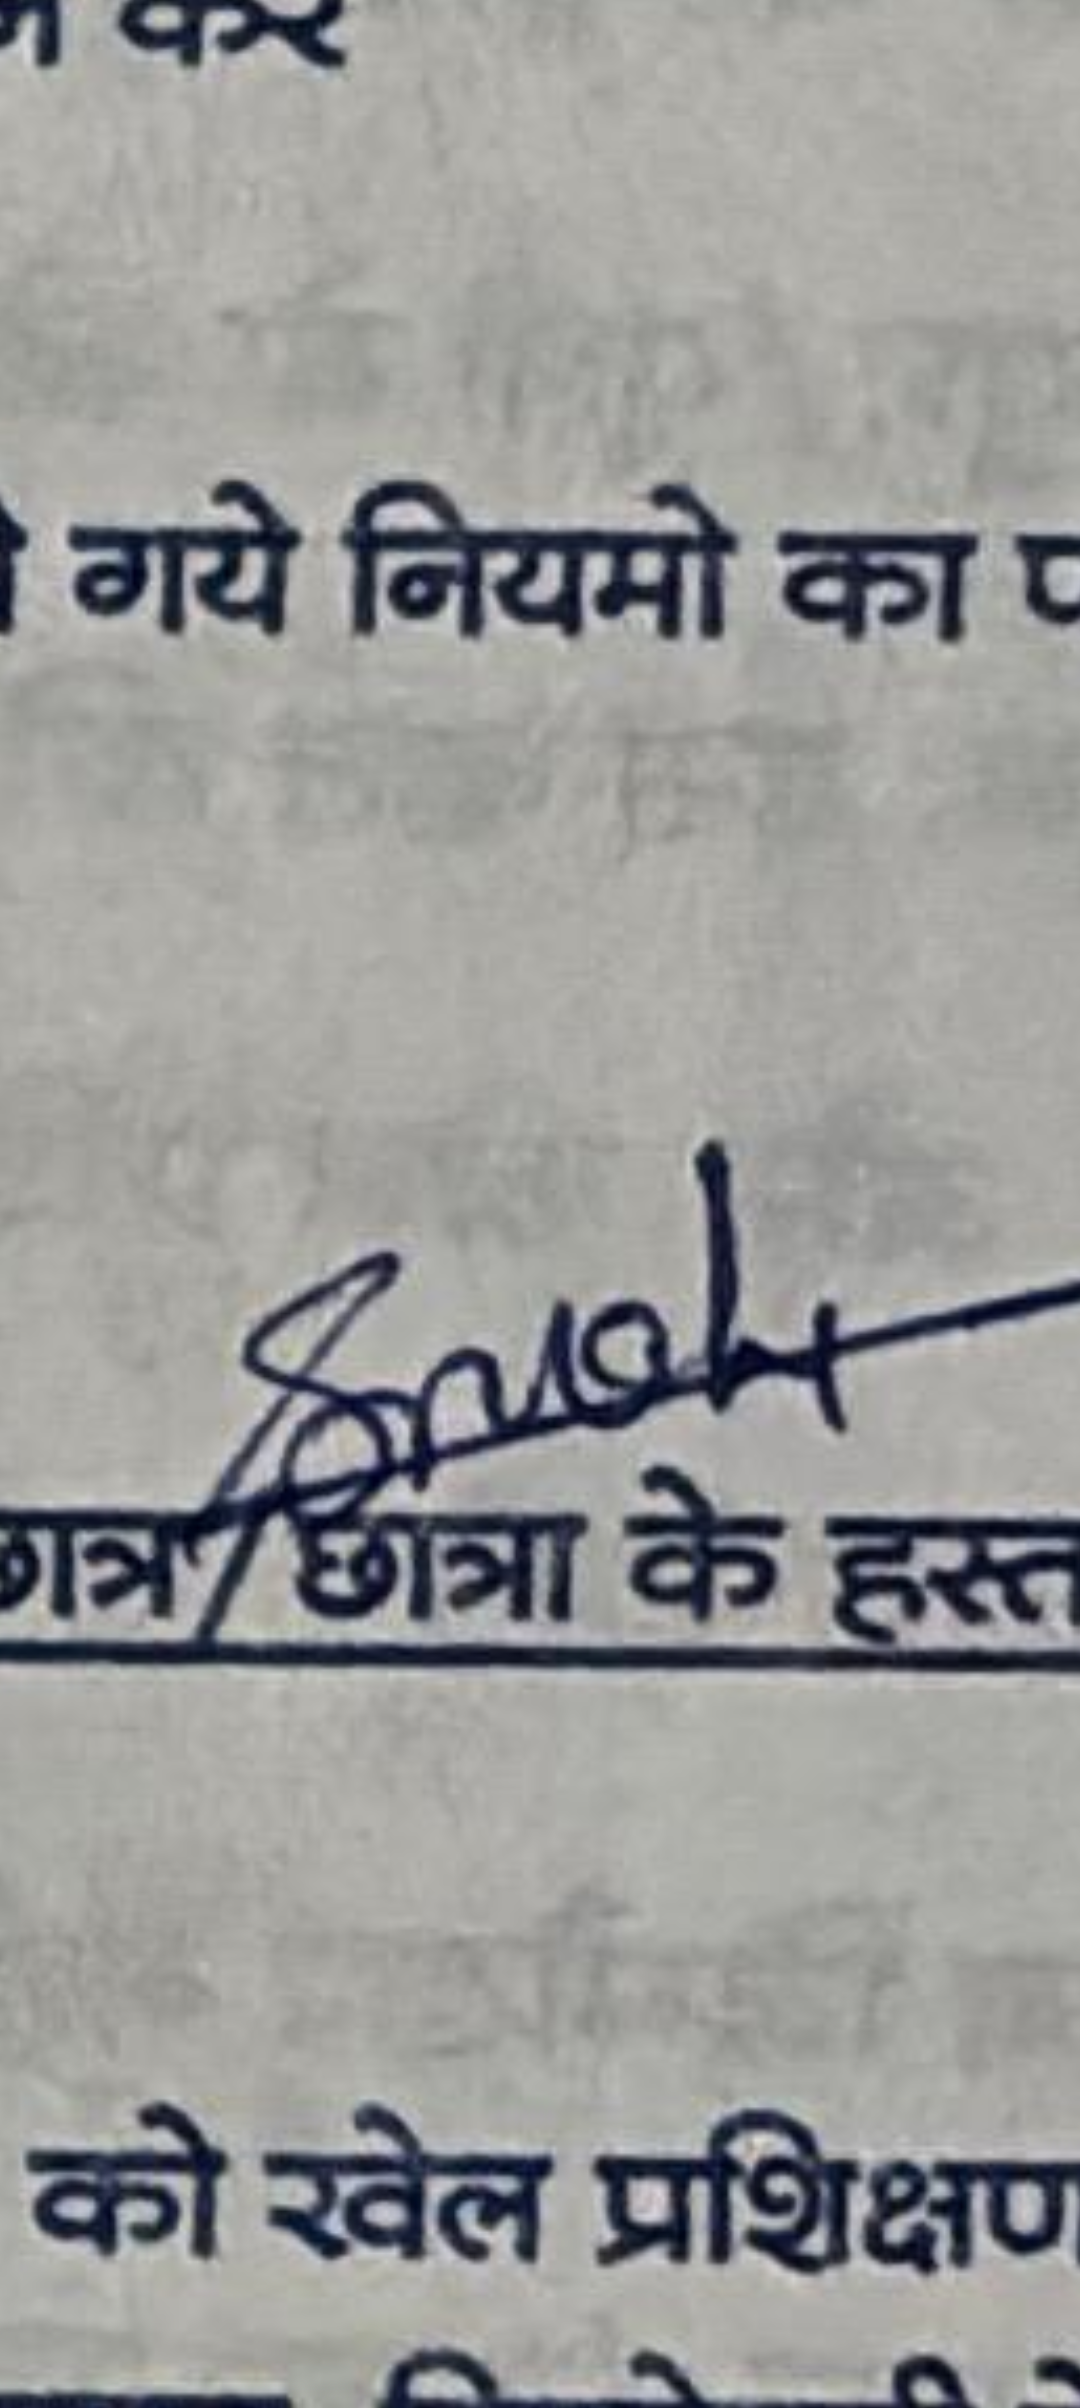 कर
गये नियमो का
छात्र/छात्रा के हस्त
को खेल प्रशिक्षण